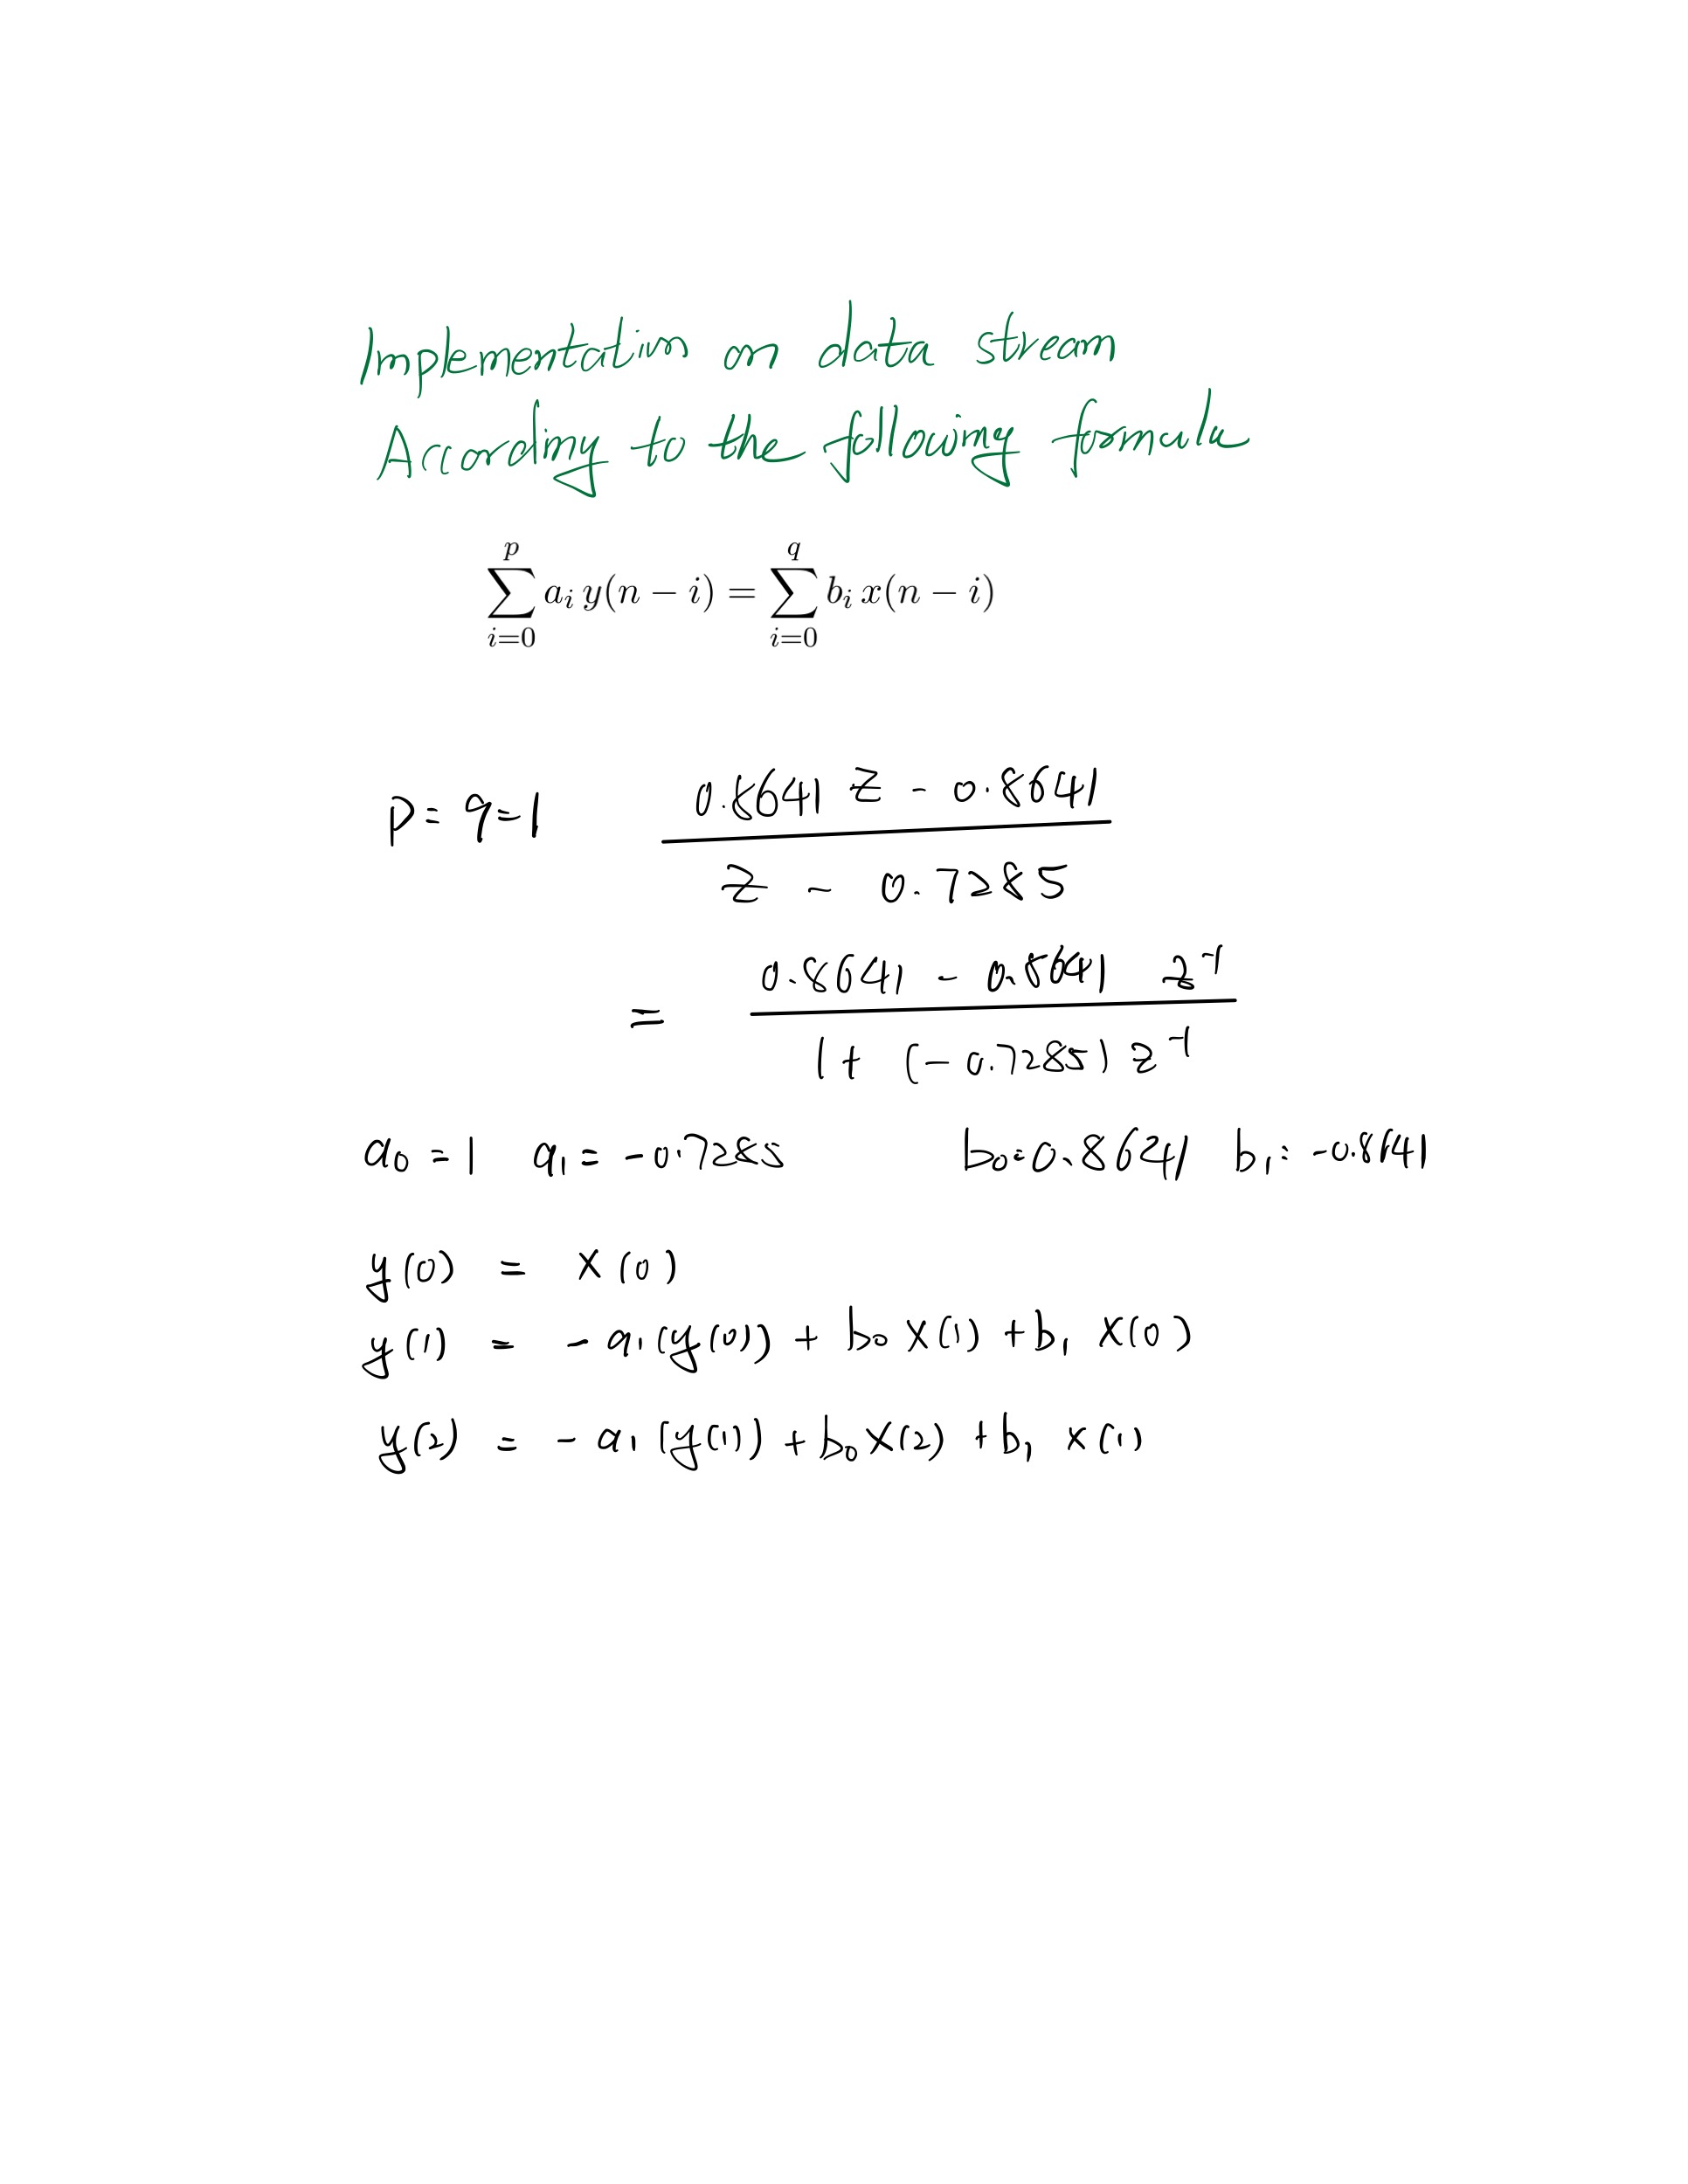 Implementation on data stream
According to the following formula
\sum_{i=0}^{p} a_i y(n − i) = \sum_{i=0}^{q} b_i x(n − i)
p = q = 1 \frac{0.8641 z - 0.8641}{z - 0.7285}
= \frac{0.8641 - 0.8641 z^{-1}}{1 + (-0.7285) z^{-1}}
a_0 = 1 a_1 = -0.7285 b_0 = 0.8641 b_1 = -0.8641
y(0) = x(0)
y(1) = - a_1 (y(0)) + b_0 x(1) + b_1 x(0)
y(2) = - a_1 (y(1)) + b_0 x(2) + b_1 x(1)